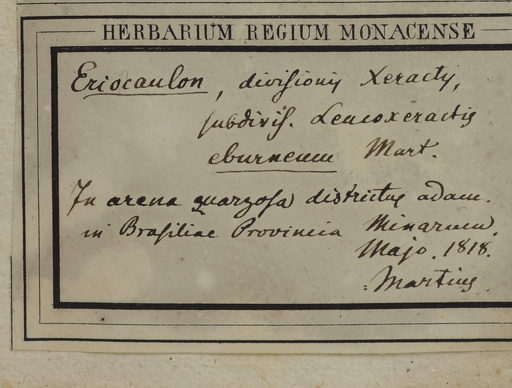 HERBARIUM REGIUM MONACENSE
Eriocaulon, divisionis Xeractis,
subdivis. Leucoxeractis
eburneum Mart.
In arena quarzosa districtus adam.
in Brasiliae Provincia Minarum.
Majo. 1818.
Martius.